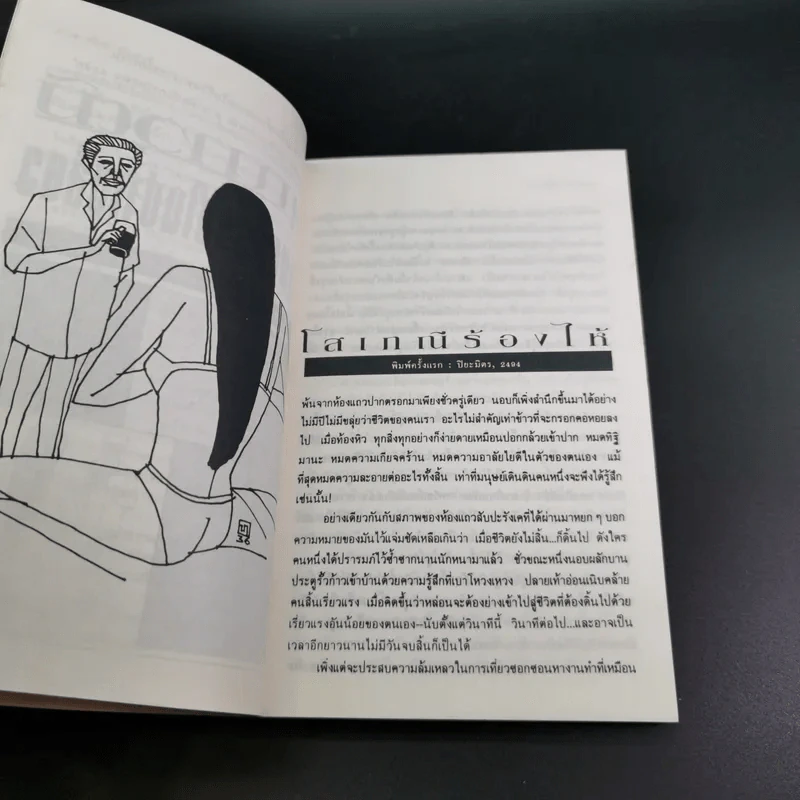 โสเภณีร้องไห้
พิมพ์ครั้งแรก : ปิยะมิตร, 2494
พ้นจากห้องแถวปากตรอกมาเพียงชั่วครู่เดียว นอบก็เพิ่งสำนึกขึ้นมาได้อย่าง
ไม่มีปีไม่มีขลุ่ยว่าชีวิตของคนเรา อะไรไม่สำคัญเท่าข้าวที่จะกรอกคอหอยลง
ไป เมื่อท้องหิว ทุกสิ่งทุกอย่างก็ง่ายดายเหมือนปอกกล้วยเข้าปาก หมดทิฐิ
มานะ หมดความเกียจคร้าน หมดความอาลัยใยดีในตัวของตนเอง แม้
ที่สุดหมดความละอายต่ออะไรทั้งสิ้น เท่าที่มนุษย์เดินดินคนหนึ่งจะพึงได้รู้สึก
เช่นนั้น!
อย่างเดียวกันกับสภาพของห้องแถวสับปะรังเคที่ได้ผ่านมาหยก ๆ บอก
ความหมายของมันไว้แจ่มชัดเหลือเกินว่า เมื่อชีวิตยังไม่สิ้น...ก็ดิ้นไป ดังใคร
คนหนึ่งได้ปรารมภ์ไว้ซ้ำซากนานนักหนามาแล้ว ชั่วขณะหนึ่งนอบผลักบาน
ประตูรั้วก้าวเข้าบ้านด้วยความรู้สึกที่เบาโหวงเหวง ปลายเท้าอ่อนเนิบคล้าย
คนสิ้นเรี่ยวแรง เมื่อคิดขึ้นว่าหล่อนจะต้องย่างเข้าไปสู่ชีวิตที่ต้องดิ้นไปด้วย
เรี่ยวแรงอันน้อยของตนเอง–นับตั้งแต่วินาทีนี้ วินาทีต่อไป...และอาจเป็น
เวลาอีกยาวนานไม่มีวันจบสิ้นก็เป็นได้
เพิ่งแต่จะประสบความล้มเหลวในการเที่ยวซอกซอนหางานทำที่เหมือน